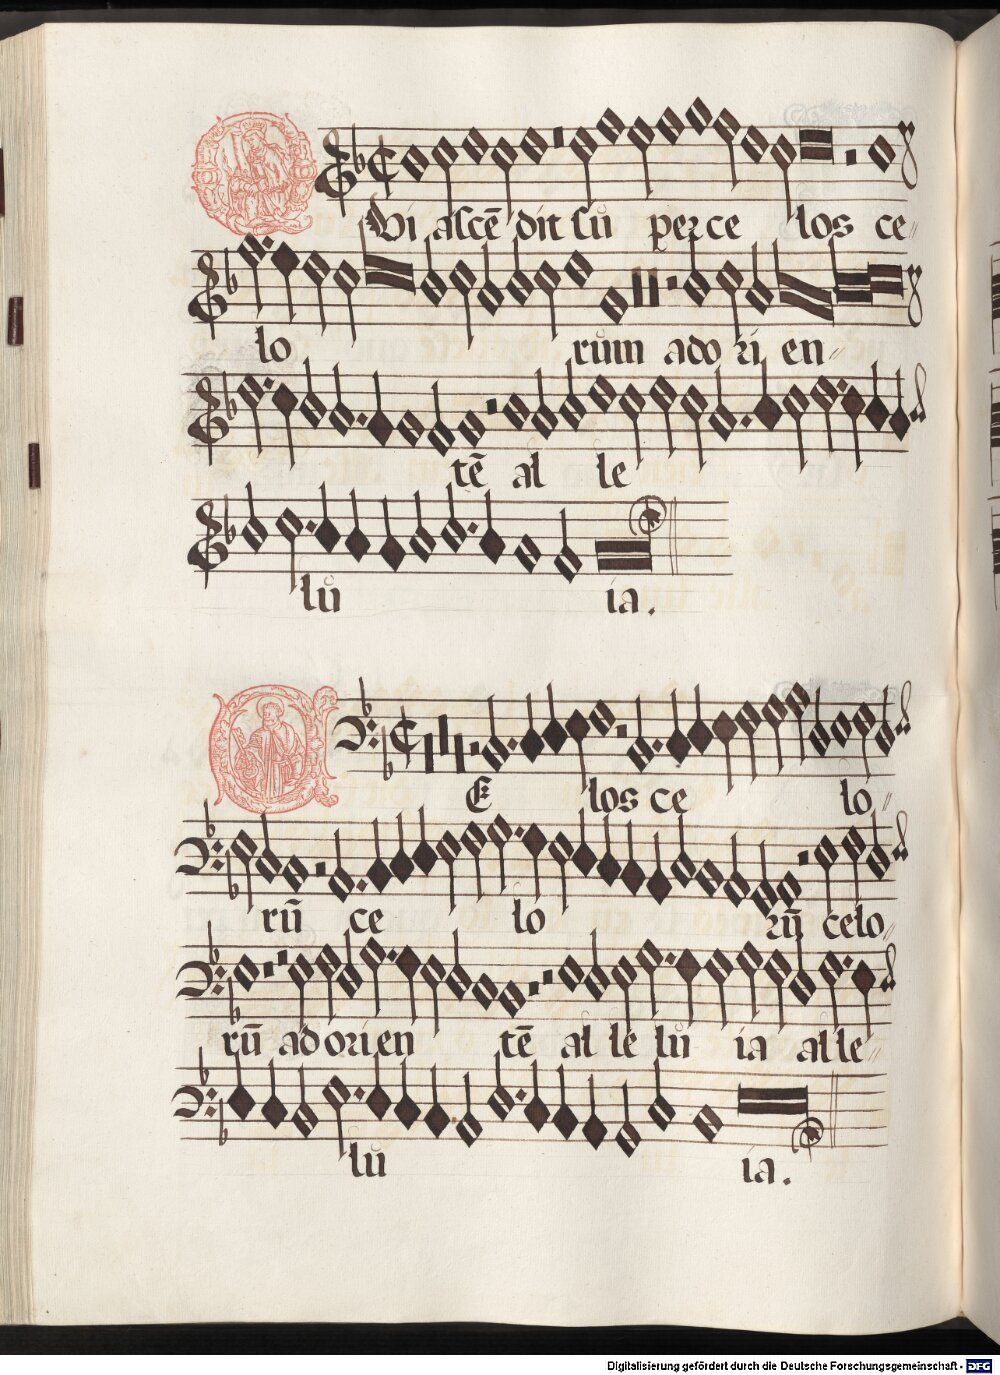 Qui ascē dit sů per ce los ce
lo rům ad o ri en
tē al le
lů ia.
CE los ce lo
rū ce lo rū celo
rū ad orien tē al le lů ia al le
lů ia.
Digitalisierung gefördert durch die Deutsche Forschungsgemeinschaft - DFG